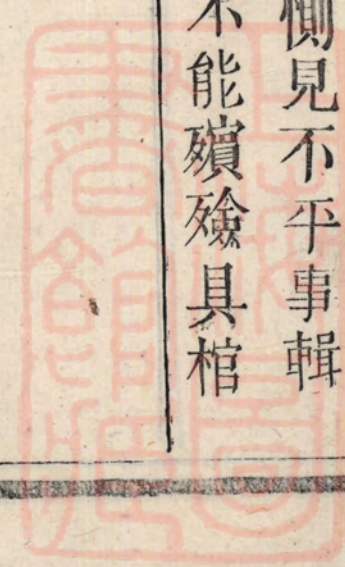 惻見不平事輯
不能殯殮具棺